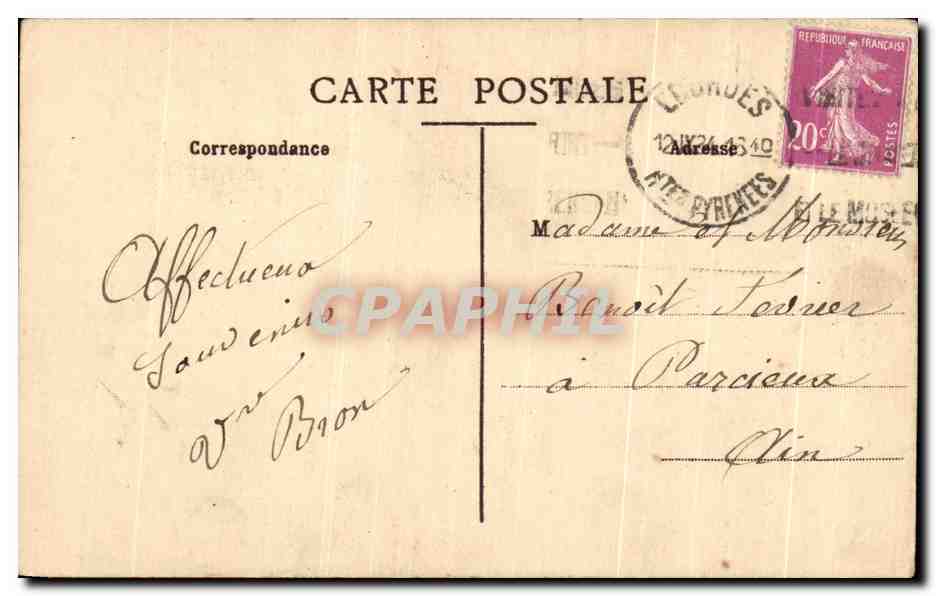 CARTE POSTALE
Correspondance
Adresse
REPUBLIQUE FRANÇAISE
20c
POSTES
LOURDES
12 IX 34 1840
Htes PYRENEES
VISITEZ
ET LE MUSEE
Affectueux
Souvenirs
Vve Bron
Madame et Monsieur
Benoît Fevrier
à Parcieux
Ain
CPAPHIL